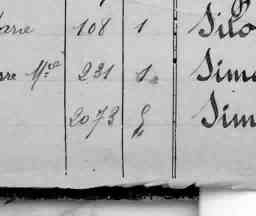 arie 108 1 Silo
re Mce 231 1 Sime
2073 Sim